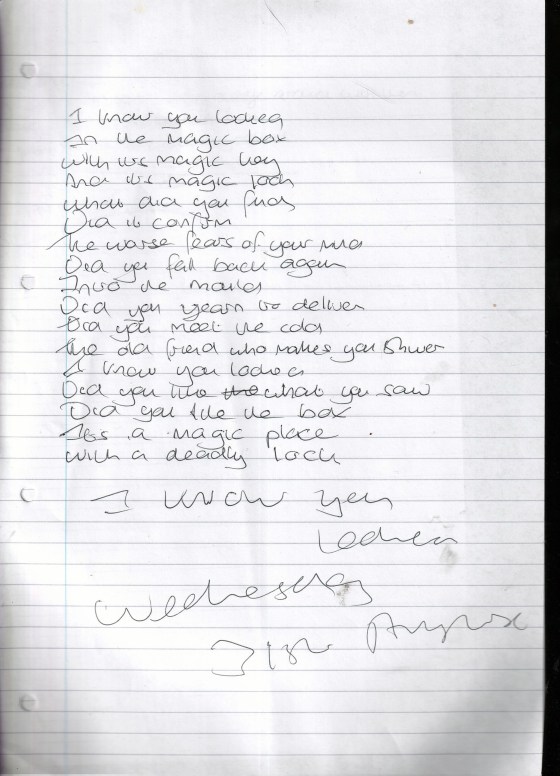 I know you looked
In the magic box
With its magic key
And its magic lock
What did you find
Did it confirm
The worse fears of your mind
Did you fall back again
Into the mould
Did you yearn to deliver
Did you meet the cold
The old friend who makes you shiver
I know you looked
Did you like the what you saw
Did you like the box
Its a magic place
With a deadly lock
I know you
looked
Wednesday
31st August